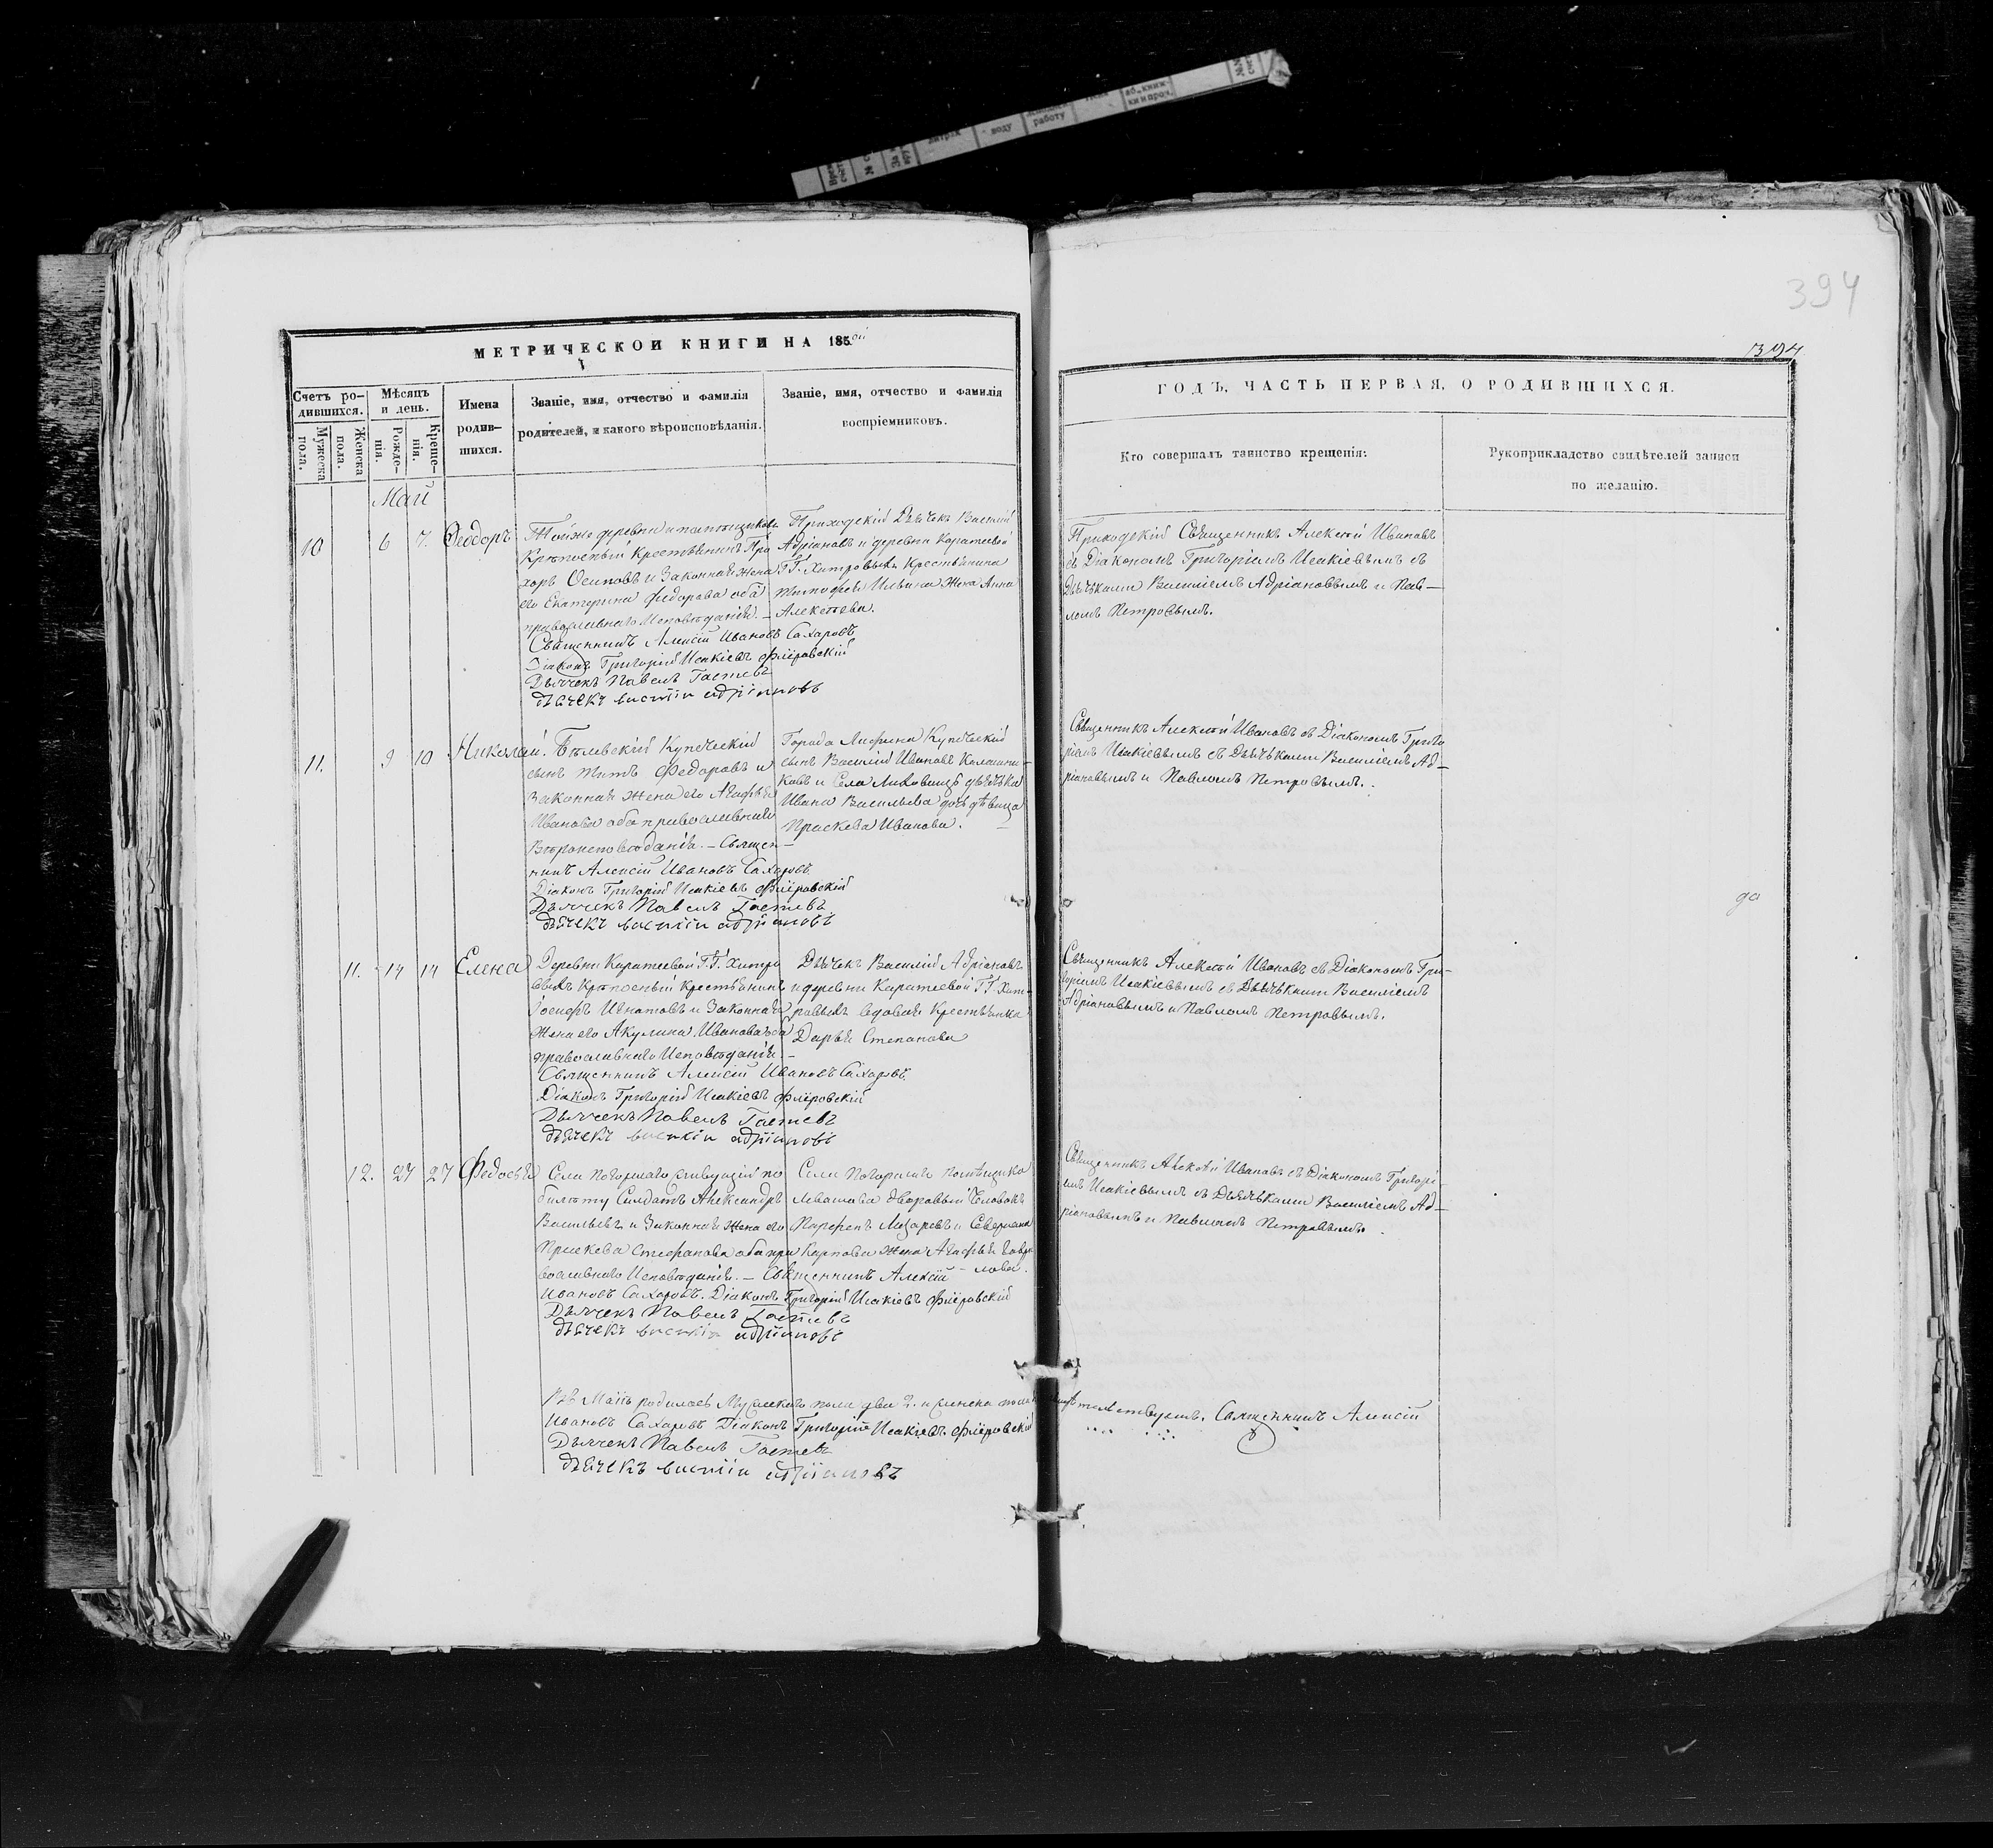 394
394
МЕТРИЧЕСКОИ КНИГИ НА 185
ГОДЪ, ЧАСТЬ ПЕРВАЯ, О РОДИВШИХСЯ.
Счетъ ро-
дившихся.
Мужеска
пола.
Женска
пола.
Мѣсяцъ
и день.
Рожде-
нія.
Креще-
нія.
Имена
родив-
шихся.
Званіе, имя, отчество и фамилія
родителей, и какого вѣроисповѣданія.
Званіе, имя, отчество и фамилія
воспріемниковъ.
Кто совершалъ таинство крещенія:
Рукоприкладство свидѣтелей записи
по желанію.
Май
10 6 7. Феодоръ
Тойже деревни
Крѣпосный Крестьянинъ Про
хоръ Осиповъ и Законная жена
его Екатерина Федорова оба
православнаго Исповѣданія. –
Священникъ Алексій Ивановъ Сахаровъ
Діаконъ Григорій Исакіевъ Флёровскій
Дьячекъ Павелъ Гастевъ
дьячекъ василіи адріановъ
Приходскій Дьячекъ Василій
Адріановъ и деревни Каратеевой
Г.Г. Хитровыхъ Крестьянина
Тимофея Ильина Жена Анна
Алексѣева.
Приходскій Священникъ Алексѣй Ивановъ
съ Діакономъ Григоріемъ Исакіевымъ съ
Дьячьками Василіемъ Адріановымъ и Пав-
ломъ Петровымъ.
11. 9 10 Николай.
Бѣлевскій Купеческій
сынъ Титъ Федоровъ и
Законная жена его Агафья
Иванова оба православнаго
Вѣроисповѣданія. – Священ-
никъ Алексій Ивановъ Сахаровъ.
Діаконъ Григорій Исакіевъ Флёровскій
Дьячекъ Павелъ Гастевъ
дьячекъ василіи адріановъ
Города Лихвина Купеческій
сынъ Василій Ивановъ Калашни-
ковъ и Села дьячька
Ивана Васильева дочь дѣвица
Праскева Иванова. –
Священникъ Алексѣй Ивановъ съ Діакономъ Григо
ріемъ Исакіевымъ съ Дьячьками Василіемъ Ад-
ріановымъ и Павломъ Петровымъ.
до
11. 14 14 Елена
Деревни Каратеевой Г.Г. Хитро
выхъ Крѣпосный Крестьянинъ
Іосифъ Игнатовъ и Законная
Жена его Акулина Иванова оба
православнаго Исповѣданія. –
Священникъ Алексій Ивановъ Сахаровъ.
Діаконъ Григорій Исакіевъ Флёровскій
Дьячекъ Павелъ Гастевъ
дьячекъ василіи адріановъ
Дьячекъ Василій Адріановъ
и деревни Каратеевой Г.Г. Хит-
ровыхъ вдовая Крестьянка
Дарья Степанова
Священникъ Алексѣй Ивановъ съ Діакономъ Гри-
горіемъ Исакіевымъ съ Дьячьками Василіемъ
Адріановымъ и Павломъ Петровымъ.
12. 27 27 Федосья
Села живущій по
билѣту Солдатъ Александръ
Васильевъ и Законная Жена его
Праскева Стефанова оба пра
вославнаго Исповѣданія. – Священникъ Алексій
Ивановъ Сахаровъ. Діаконъ Григорій Исакіевъ Флёровскій
Дьячекъ Павелъ Гастевъ
дьячекъ василіи адріановъ
Села помѣщика
Левашова дворовый Человекъ
Парфенъ Лазаревъ и
Карпова жена Агафья Гаври
лова.
Священникъ Алексѣй Ивановъ съ Діакономъ Григорі-
емъ Исакіевымъ съ Дьячьками Василіемъ Ад-
ріановымъ и Павломъ Петровымъ.
Въ Маіѣ родилось Мужескаго пола два 2. и женска пола свидѣтельствуемъ. Священникъ Алексій
Ивановъ Сахаровъ Діаконъ Григорій Исакіевъ Флёровскій
Дьячекъ Павелъ Гастевъ
дьячекъ василіи адріановъ